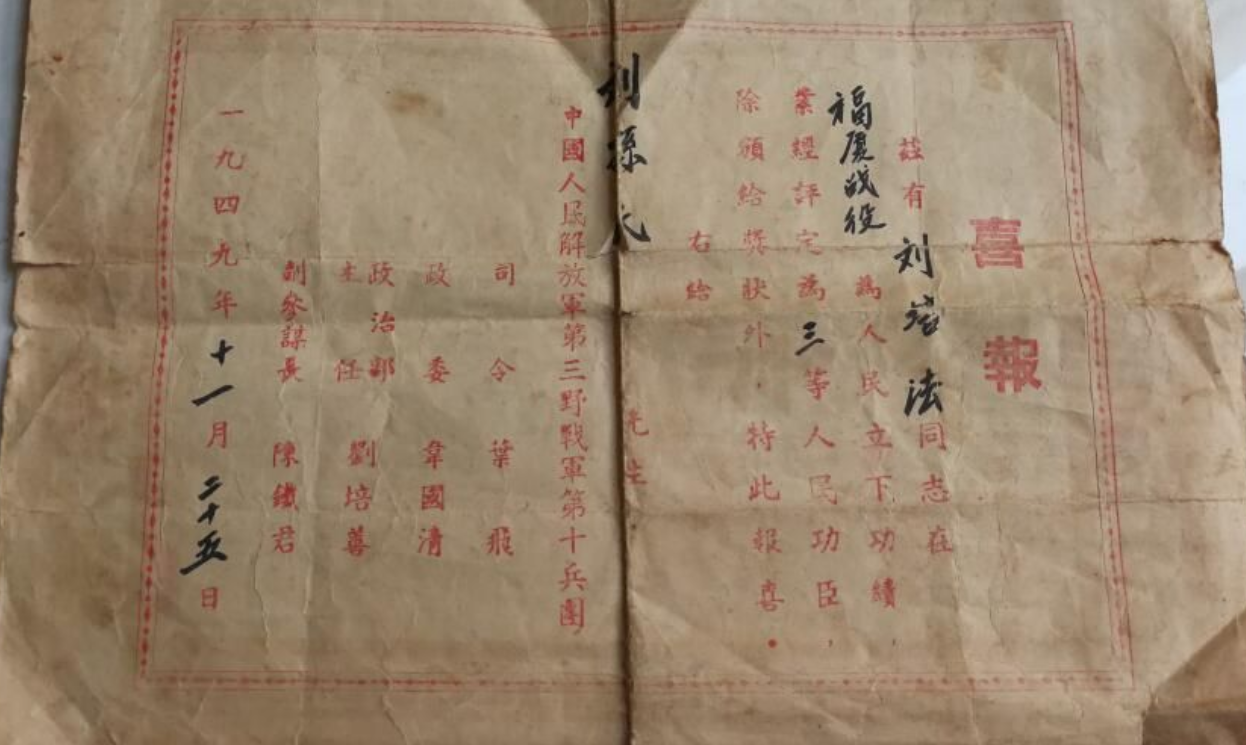 喜報
茲有刘法同志在
福厦战役為人民立下功績，
業經評定為三等人民功臣，
除頒給獎狀外，特此報喜。
右給
刘孫氏先生
中國人民解放軍第三野戰軍第十兵團
司令葉飛
政委韋國清
政治部主任劉培善
副參謀長陳鐵君
一九四九年十一月二十五日